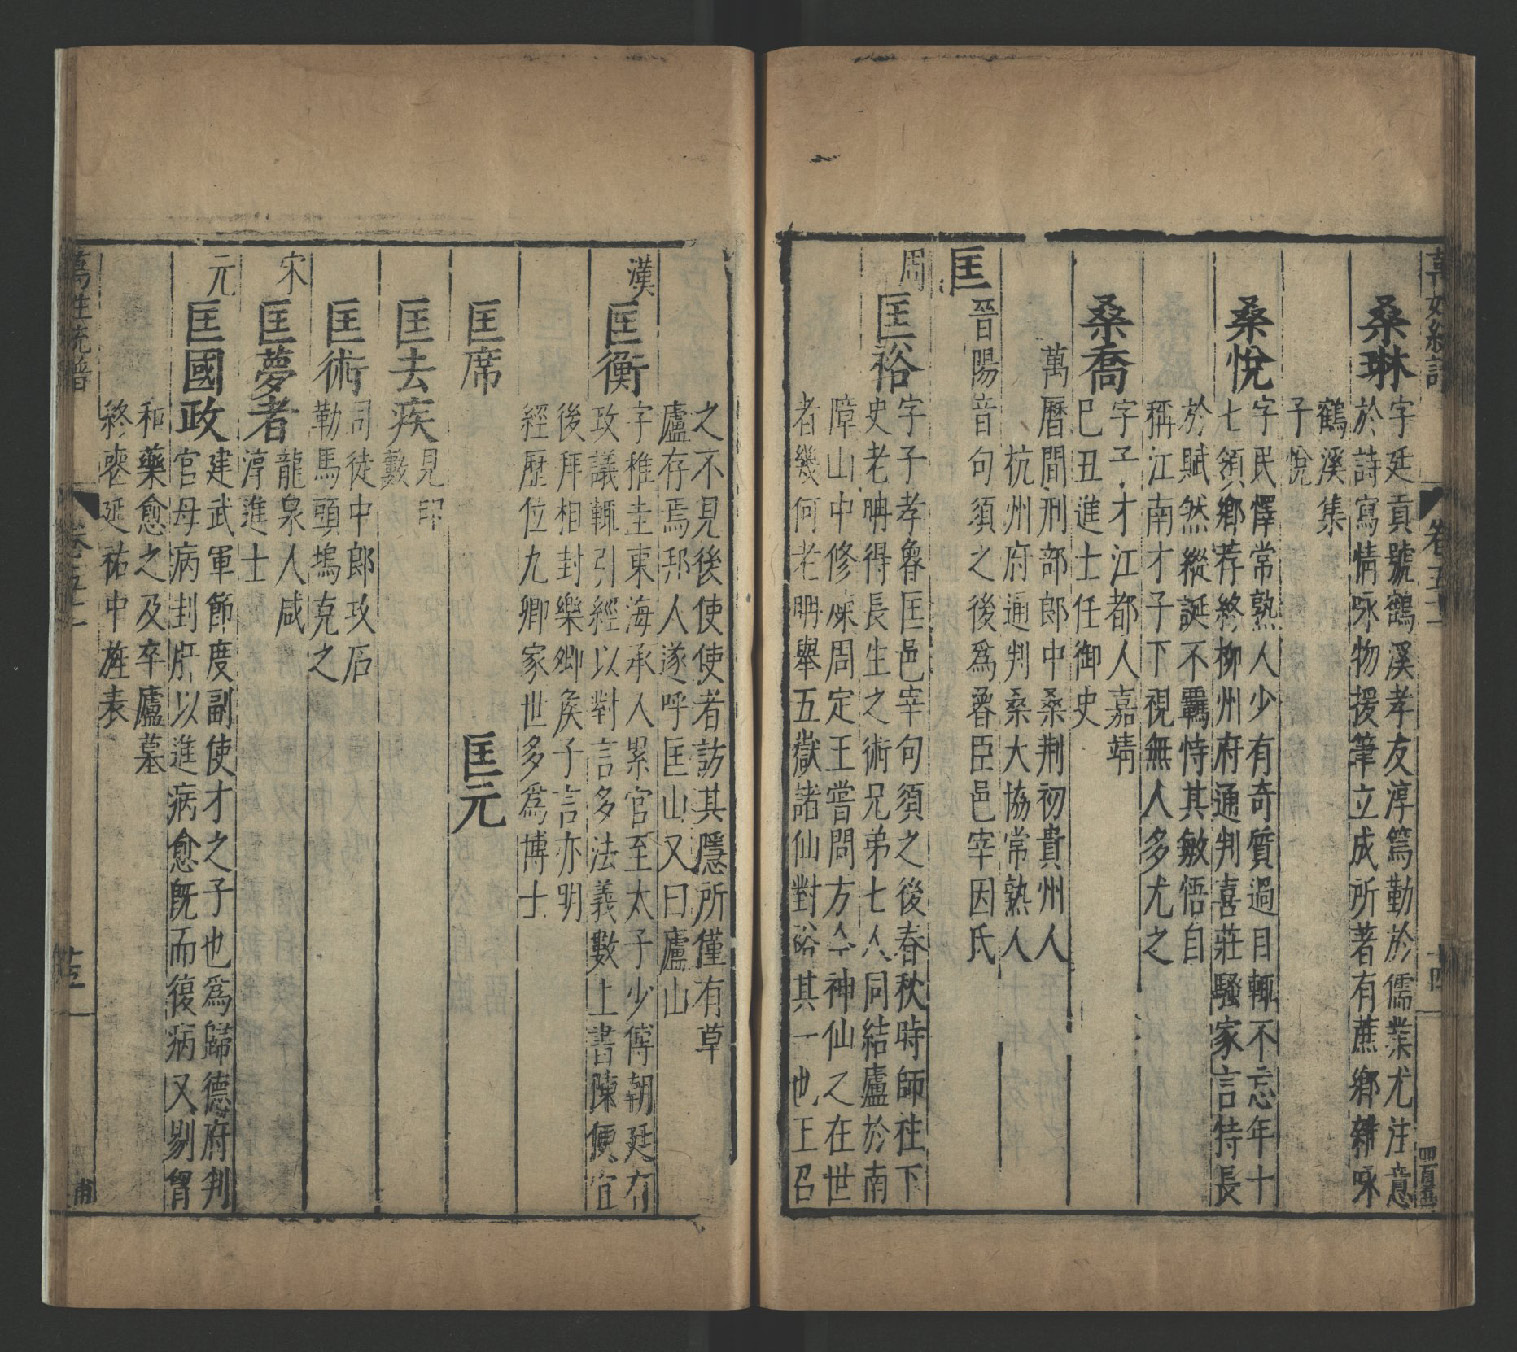 萬姓統譜
卷五十
十四
桑琳
字廷貢號鶴溪孝友淳篤勤於儒業尤注意
於詩寫情咏物援筆立成所著有蔗鄉雜咏
鶴溪集
子悅
桑悅
字民懌常熟人少有奇質過目輒不忘年十
七領鄉荐終柳州府通判喜莊騷家言特長
於賦然縱誕不羈恃其敏悟自
稱江南才子下視無人多尤之
桑喬
字子才江都人嘉靖
己丑進士任御史
萬曆間刑部郎中桑荆初貴州人
杭州府通判桑大協常熟人
匡
晉陽音句須之後為魯臣邑宰因氏
周
匡裕
字子孝魯匡邑宰句須之後春秋時師柱下
史老聃得長生之術兄弟七人同結廬於南
障山中修煉周定王嘗問方今神仙之在世
者幾何老聃舉五嶽諸仙對裕其一也王召
之不見後使使者訪其隱所僅有草
廬存焉邦人遂呼匡山又曰廬山
漢
匡衡
字稚圭東海承人累官至太子少傅朝廷有
政議輒引經以對言多法義數上書陳便宜
後拜相封樂鄉侯子言亦明
經歷位九卿家世多為博士
匡席
匡元
匡去疾
見印
藪
匡術
司徒中郎攻石
勒馬頭塢克之
宋
匡夢者
龍泉人咸
淳進士
元
匡國政
建武軍節度副使才之子也為歸德府判
官母病刲肝以進病愈既而復病又剔胃
和藥愈之及卒廬墓
終喪延祐中旌表
萬姓統譜